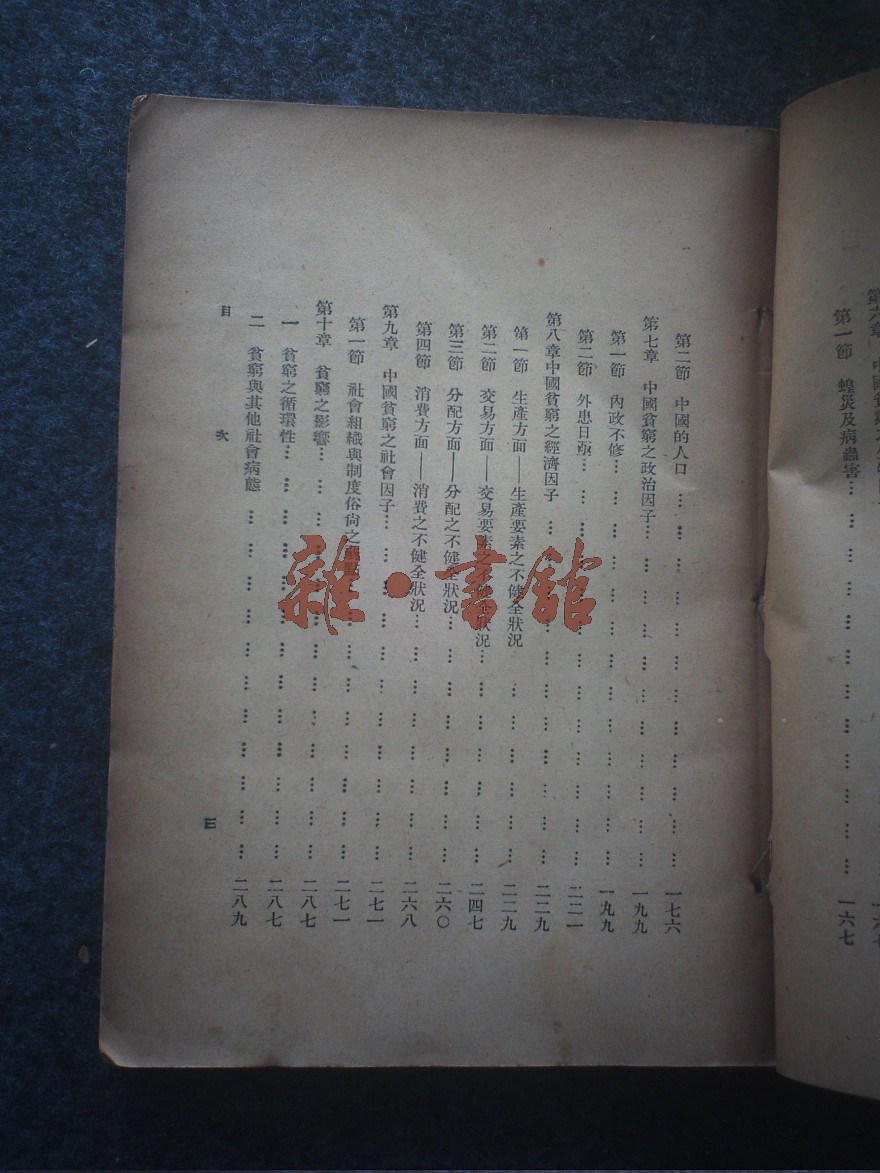 第一節 蝗災及病蟲害……………………………一六七
第二節 中國的人口……………………………一七六
第七章 中國貧窮之政治因子……………………………一九九
第一節 內政不修……………………………一九九
第二節 外患日亟……………………………二二一
第八章中國貧窮之經濟因子……………………………二二九
第一節 生產方面——生產要素之不健全狀況……………………………二二九
第二節 交易方面——交易要素之不健全狀況……………………………二四七
第三節 分配方面——分配之不健全狀況……………………………二六〇
第四節 消費方面——消費之不健全狀況……………………………二六八
第九章 中國貧窮之社會因子……………………………二七一
第一節 社會組織與制度俗尚之……………………………二七一
第十章 貧窮之影響……………………………二八七
一 貧窮之循環性……………………………二八七
二 貧窮與其他社會病態……………………………二八九
目次 三
雜·書館